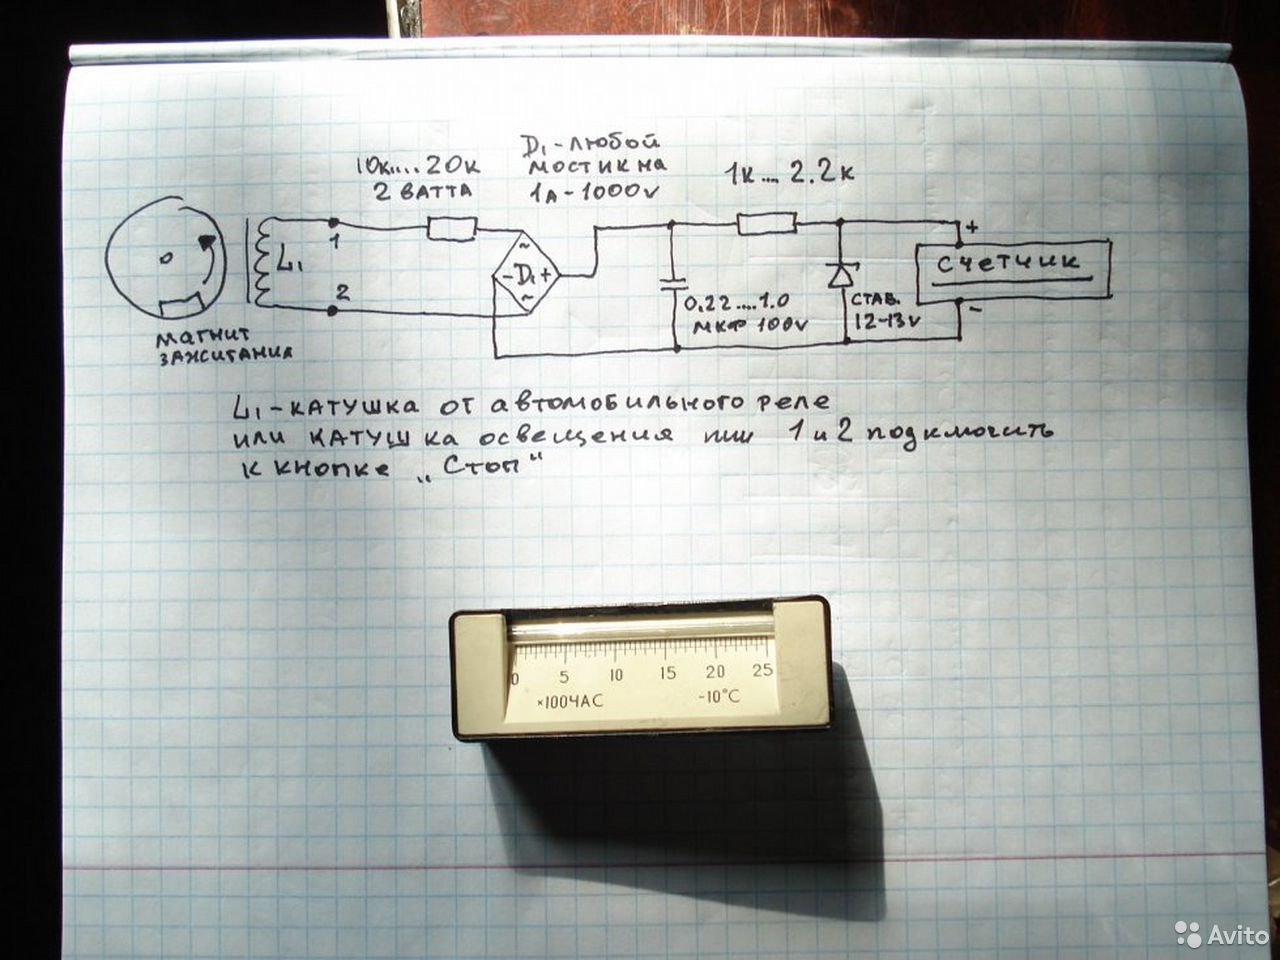 10к....20к
2 ватта
D₁-любой
мостик на
1А-1000v
1к.... 2.2к
1
L₁
2
~
- D₁ +
~
+
счетчик
-
0.22....1.0
мкф 100v
СТАБ.
12-13v
магнит
зажигания
L₁-катушка от автомобильного реле
или катушка освещения или 1 и 2 подключить
к кнопке „Стоп"
0 5 10 15 20 25
×100ЧАС -10°C
Avito